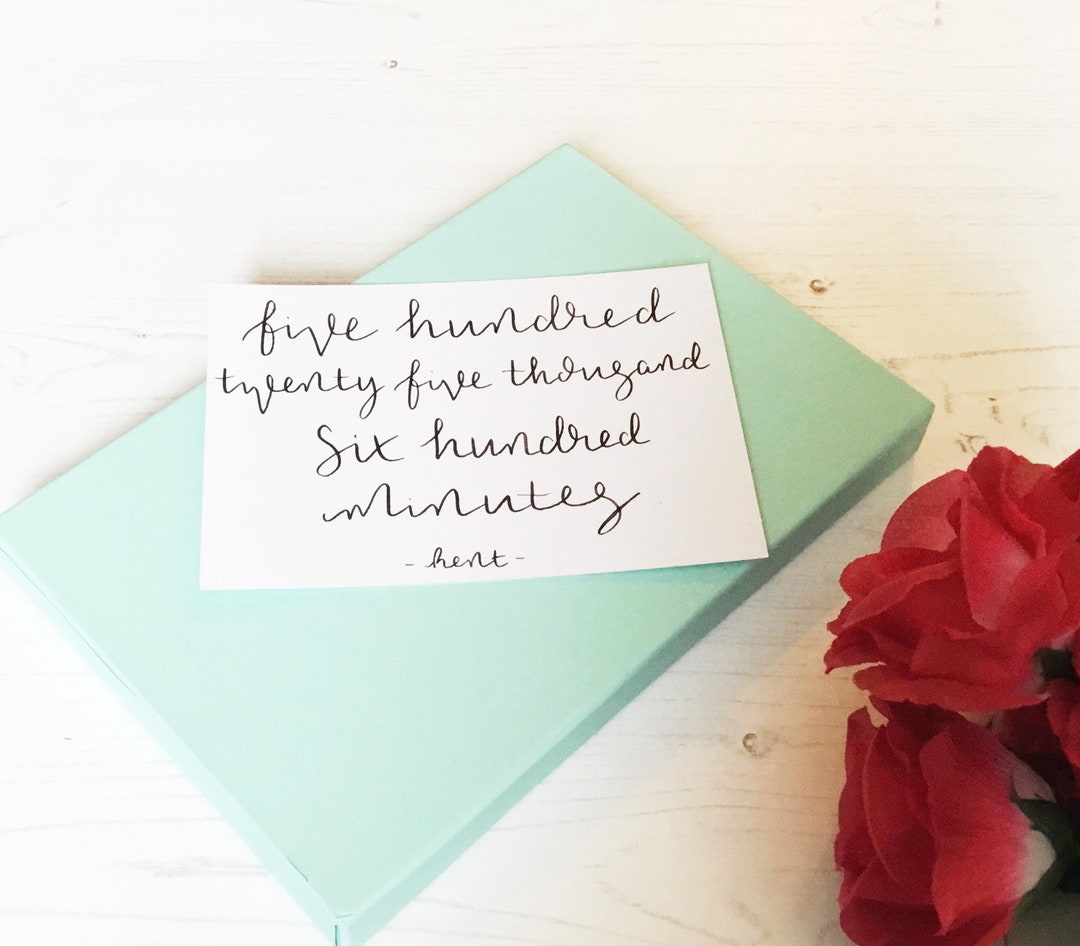 five hundred
twenty five thousand
Six hundred
minutes
- rent -